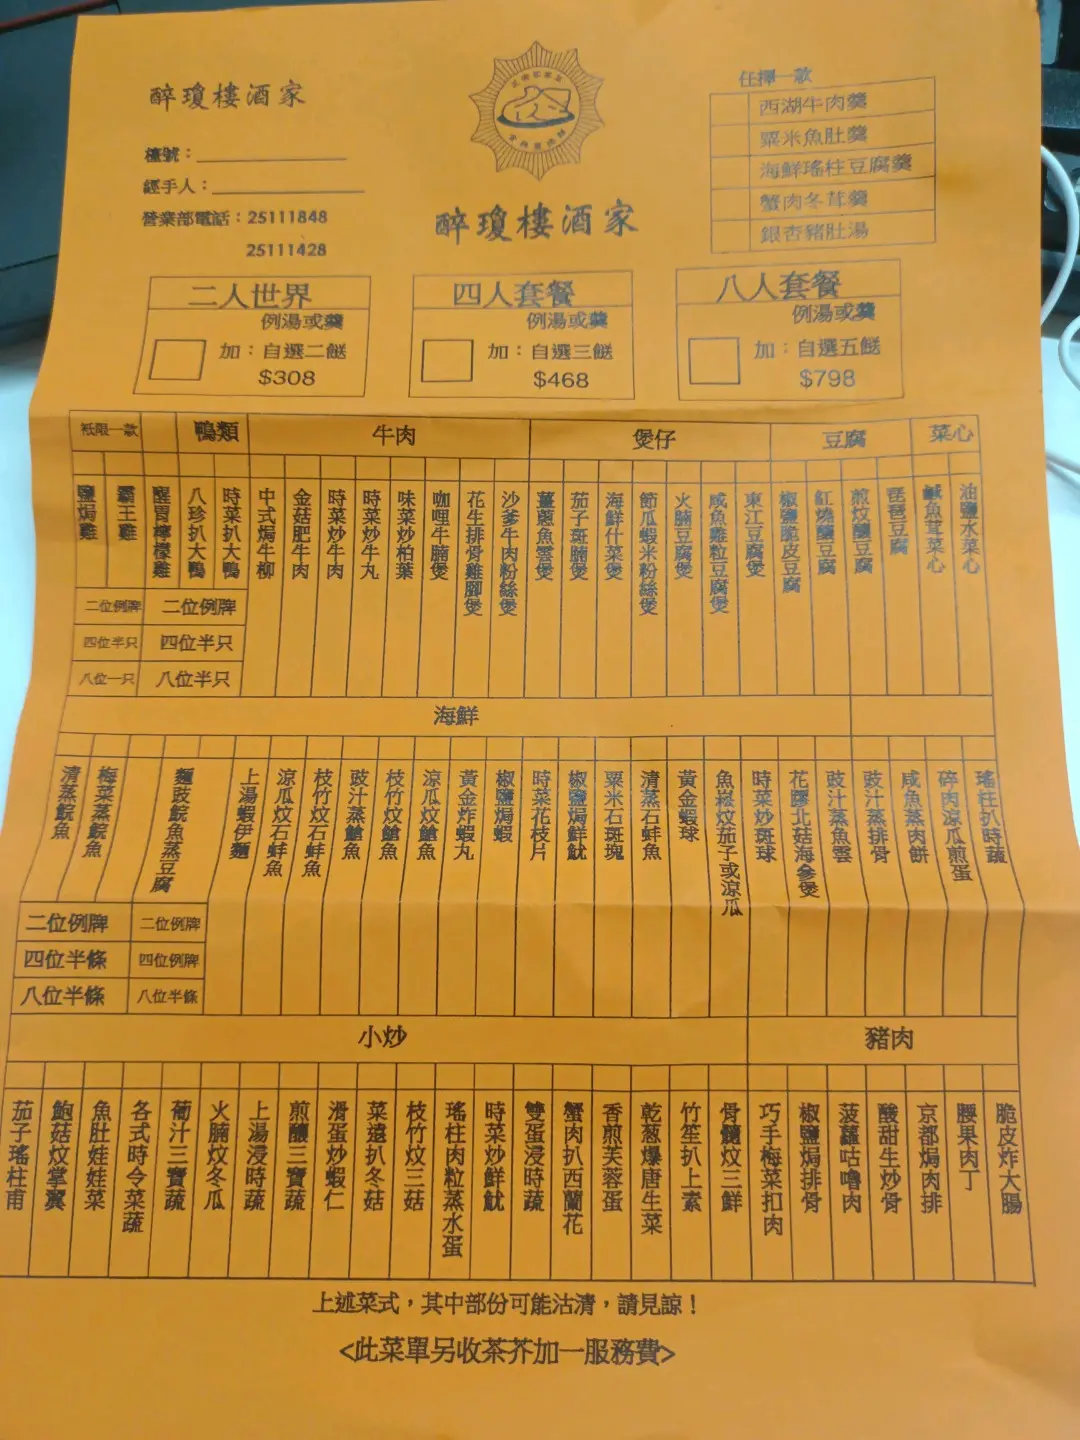 醉瓊樓酒家
檯號：
經手人：
營業部電話：25111848
25111428
醉瓊樓酒家
任擇一款
西湖牛肉羹
粟米魚肚羹
海鮮瑤柱豆腐羹
蟹肉冬茸羹
銀杏豬肚湯
二人世界
例湯或羹
加：自選二餸
$308
四人套餐
例湯或羹
加：自選三餸
$468
八人套餐
例湯或羹
加：自選五餸
$798
祇限一款
鴨類
牛肉
煲仔
豆腐
菜心
鹽焗雞
霸王雞
醒胃檸檬雞
八珍扒大鴨
時菜扒大鴨
中式焗牛柳
金菇肥牛肉
時菜炒牛肉
時菜炒牛丸
味菜炒柏葉
咖哩牛腩煲
花生排骨雞腳煲
沙爹牛肉粉絲煲
薑蔥魚雲煲
茄子斑腩煲
海鮮什菜煲
節瓜蝦米粉絲煲
火腩豆腐煲
咸魚雞粒豆腐煲
東江豆腐煲
椒鹽脆皮豆腐
紅燒釀豆腐
煎炆釀豆腐
琵琶豆腐
鹹魚茸菜心
油鹽水菜心
二位例牌
二位例牌
四位半只
四位半只
八位一只
八位半只
海鮮
清蒸鯇魚
梅菜蒸鯇魚
麵豉鯇魚蒸豆腐
上湯蝦伊麵
涼瓜炆石蚌魚
枝竹炆石蚌魚
豉汁蒸鱠魚
枝竹炆鱠魚
涼瓜炆鱠魚
黃金炸蝦丸
椒鹽焗蝦
時菜花枝片
椒鹽焗鮮魷
粟米石斑塊
清蒸石蚌魚
黃金蝦球
魚崧炆茄子或涼瓜
時菜炒斑球
花膠北菇海參煲
豉汁蒸魚雲
豉汁蒸排骨
咸魚蒸肉餅
碎肉涼瓜煎蛋
瑤柱扒時蔬
二位例牌
二位例牌
四位半條
四位例牌
八位半條
八位半條
小炒
豬肉
茄子瑤柱甫
鮑菇炆掌翼
魚肚娃娃菜
各式時令菜蔬
葡汁三寶蔬
火腩炆冬瓜
上湯浸時蔬
煎釀三寶蔬
滑蛋炒蝦仁
菜遠扒冬菇
枝竹炆三菇
瑤柱肉粒蒸水蛋
時菜炒鮮魷
雙蛋浸時蔬
蟹肉扒西蘭花
香煎芙蓉蛋
乾葱爆唐生菜
竹笙扒上素
骨髓炆三鮮
巧手梅菜扣肉
椒鹽焗排骨
菠蘿咕嚕肉
酸甜生炒骨
京都焗肉排
腰果肉丁
脆皮炸大腸
上述菜式，其中部份可能沽清，請見諒！
<此菜單另收茶芥加一服務費>